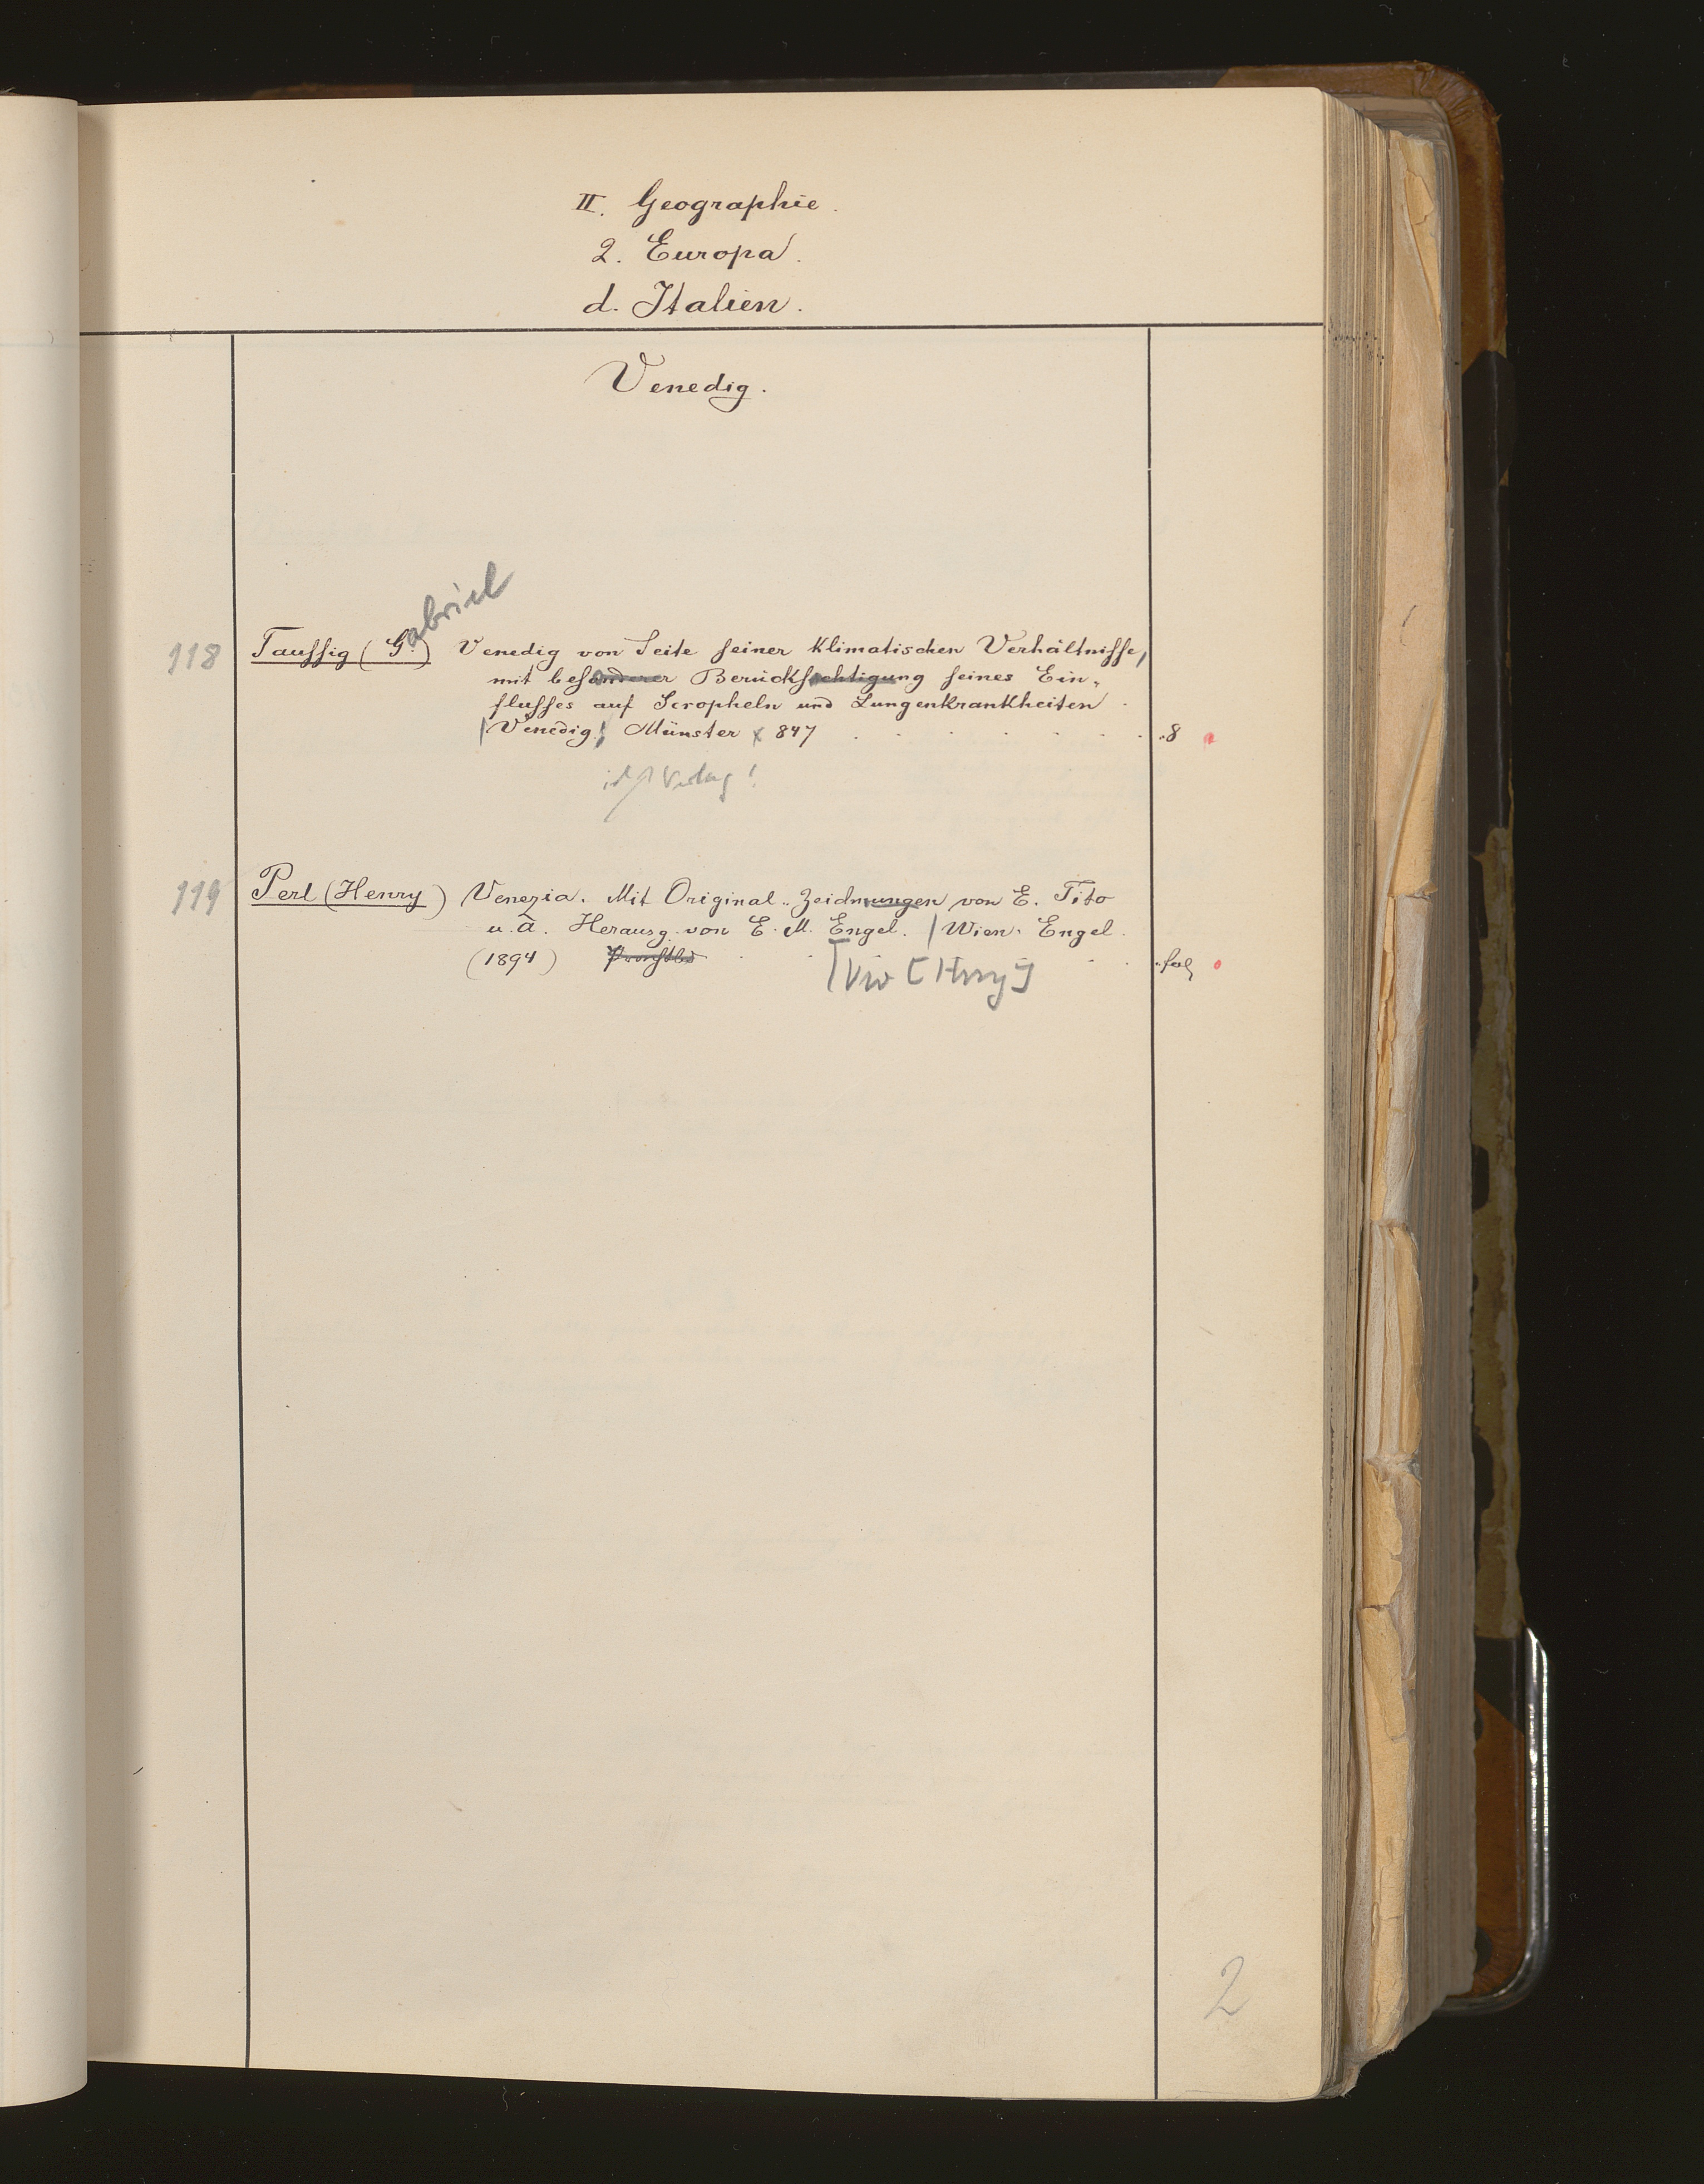 II. Geographie.
2. Europa.
d. Italien.
Venedig.
118 Taussig (Gabriel) Venedig von Seite seiner klimatischen Verhältnisse,
mit besonderer Berücksichtigung seines Ein-
flusses auf Scropheln und Lungenkrankheiten.
Venedig, Münster 847 8
ist Verlag!
119 Perl (Henry) Venezia. Mit Original-Zeichnungen von E. Tito
u. A. Herausg. von E. M. Engel. | Wien. Engel.
(1894) fol
2